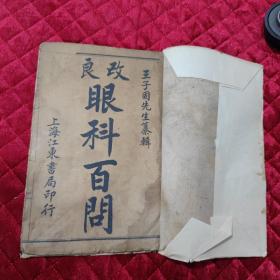 王子固先生纂輯
改良
眼科百問
上海江東書局印行